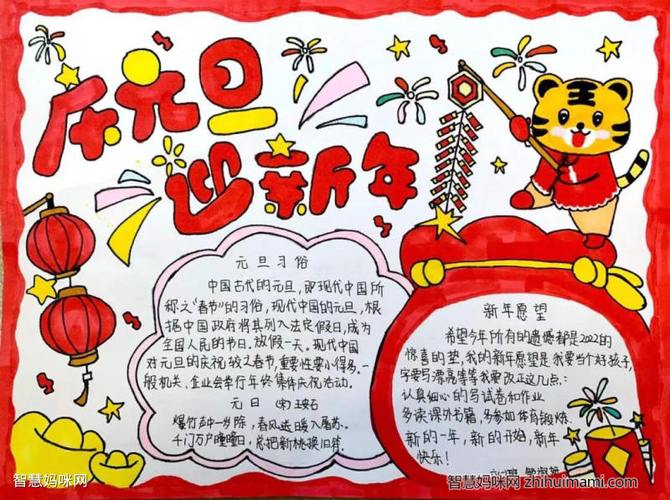 庆元旦
迎新年
元旦习俗
中国古代的元旦，即现代中国所
称之"春节"的习俗，现代中国的元旦，根
据中国政府将其列入法定假日，成为
全国人民的节日。放假一天。现代中国
对元旦的庆祝较之春节，重要性要小得多。一
般机关、企业会举行年终集体庆祝活动。
元日 (宋)王安石
爆竹声中一岁除，春风送暖入屠苏。
千门万户曈曈日，总把新桃换旧符。
新年愿望
希望今年所有的遗憾都是2022的
惊喜的垫，我的新年愿望是我要当个好孩子，
字要写漂亮等等我要改正这几点：
认真细心的写试卷和作业
多读课外书籍，多参加体育锻炼.
新的一年，新的开始，新年
快乐！
智慧妈咪网
智慧妈咪网 zhihuimami.com